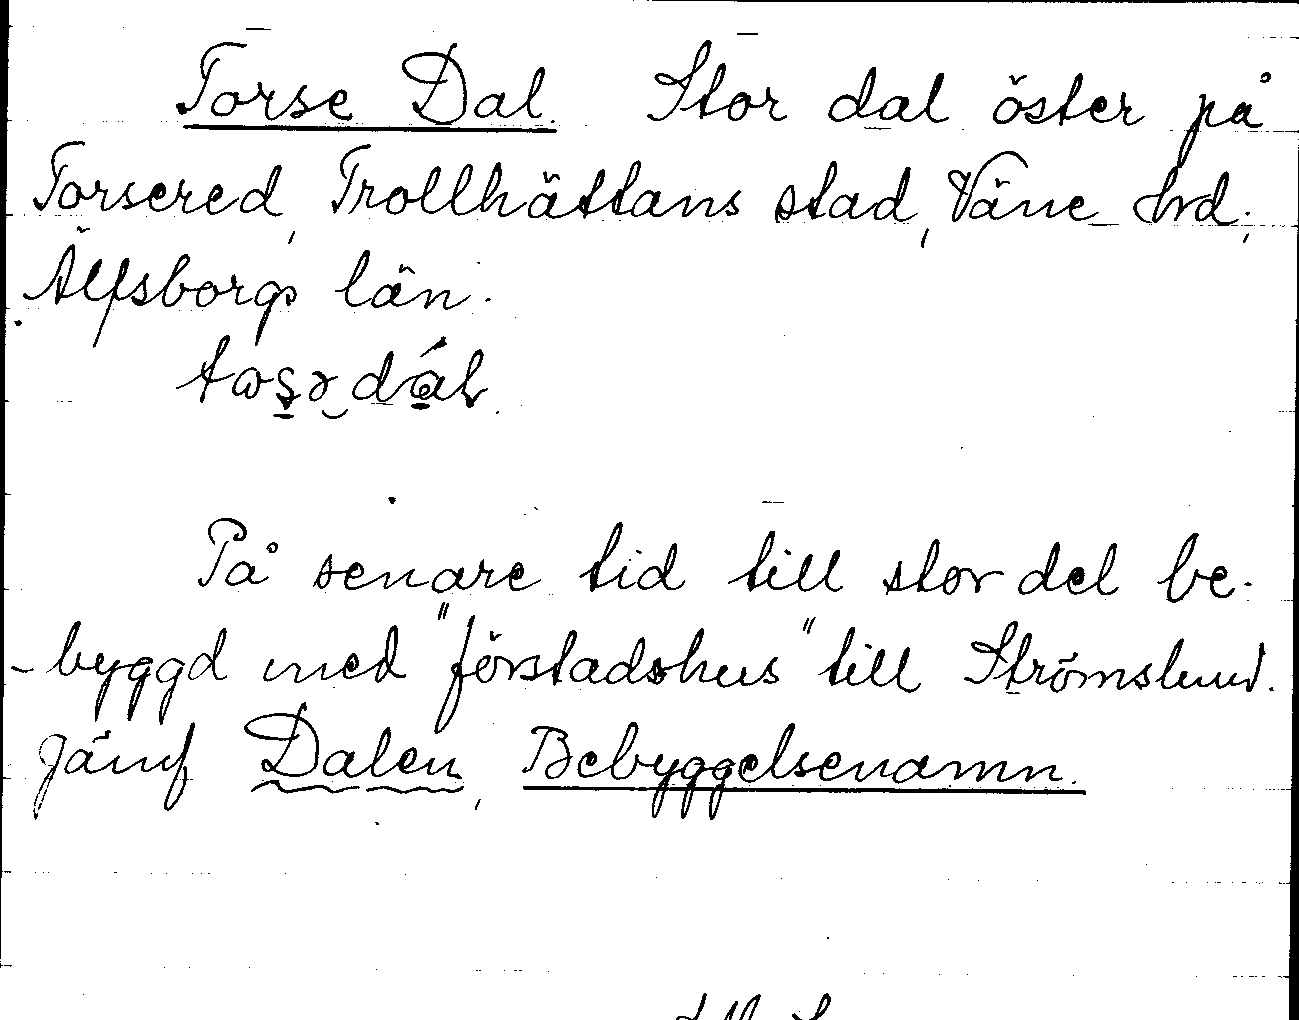 Torse Dal. Stor dal öster på
Torsered, Trollhättans stad, Väne hrd,
Älfsborgs län.
På senare tid till stor del be-
-byggd med "förstadshus" till Strömslund.
Jämf Dalen, Bebyggelsenamn.